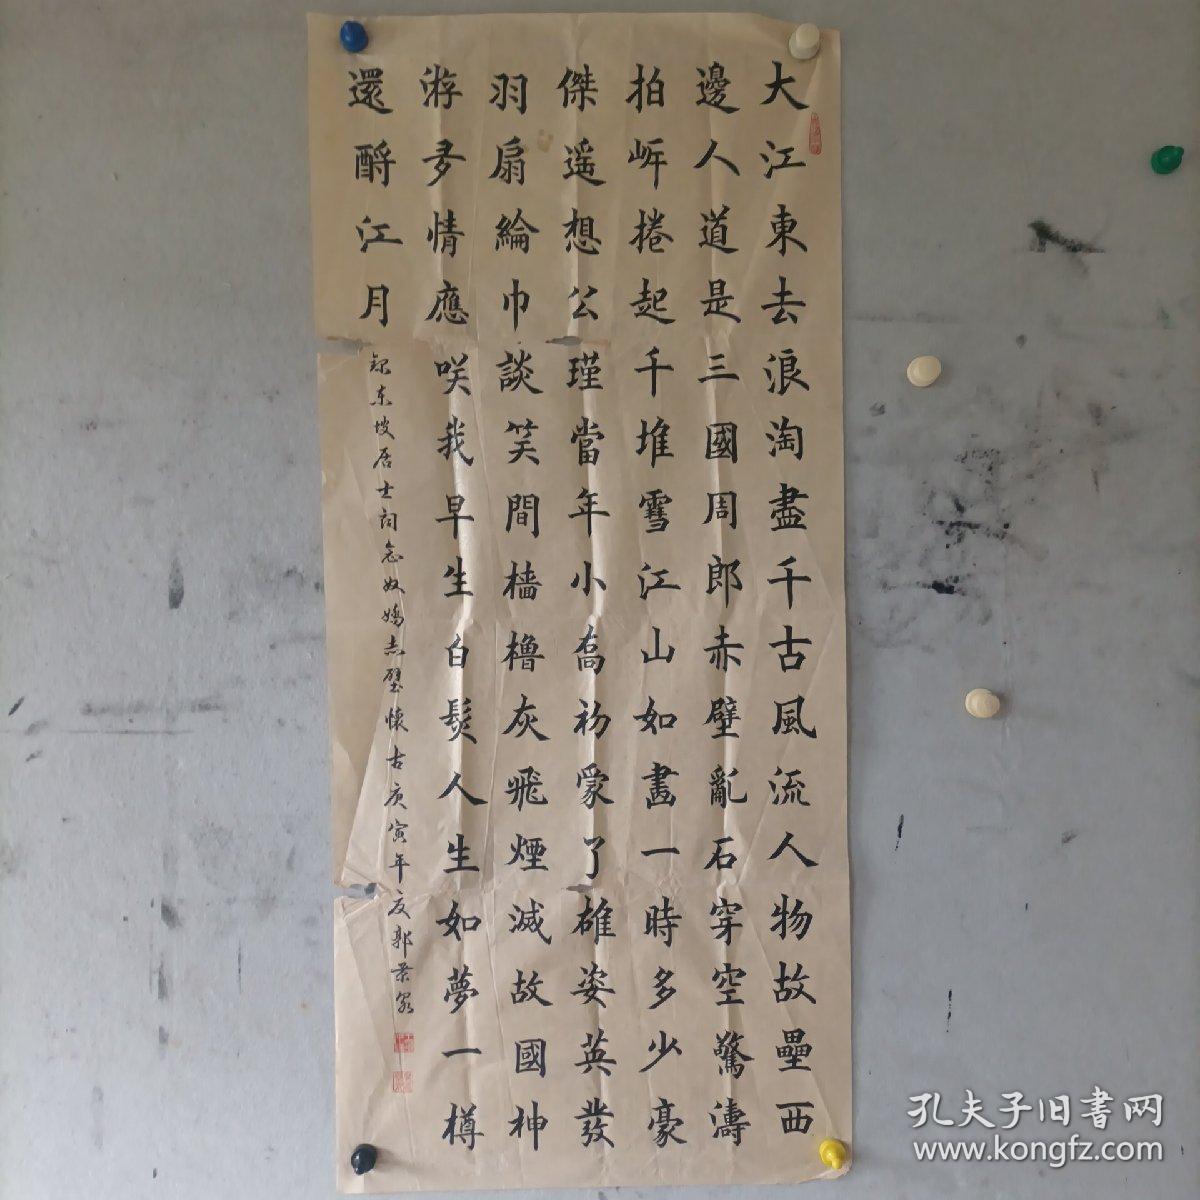 大江東去浪淘盡千古風流人物故壘西
邊人道是三國周郎赤壁亂石穿空驚濤
拍岍捲起千堆雪江山如畵一時多少豪
傑遥想公瑾當年小喬初家了雄姿英發
羽扇綸巾談笑間檣櫓灰飛煙滅故國神
游多情應咲我早生白髮人生如夢一樽
還酹江月
録東坡居士詞念奴嬌赤壁懷古庚寅年夏郭景
孔夫子旧書网
www.kongfz.com